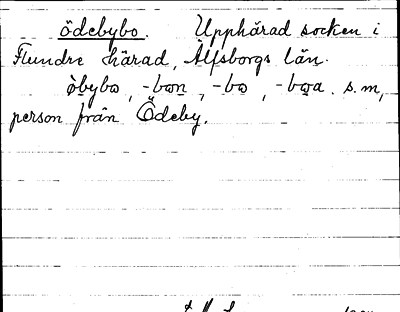 ödebybo. Upphärad socken i
Flundre härad, Älfsborgs län.
öbybo, -bon, -bo, -boa. s.m,
person från Ödeby.